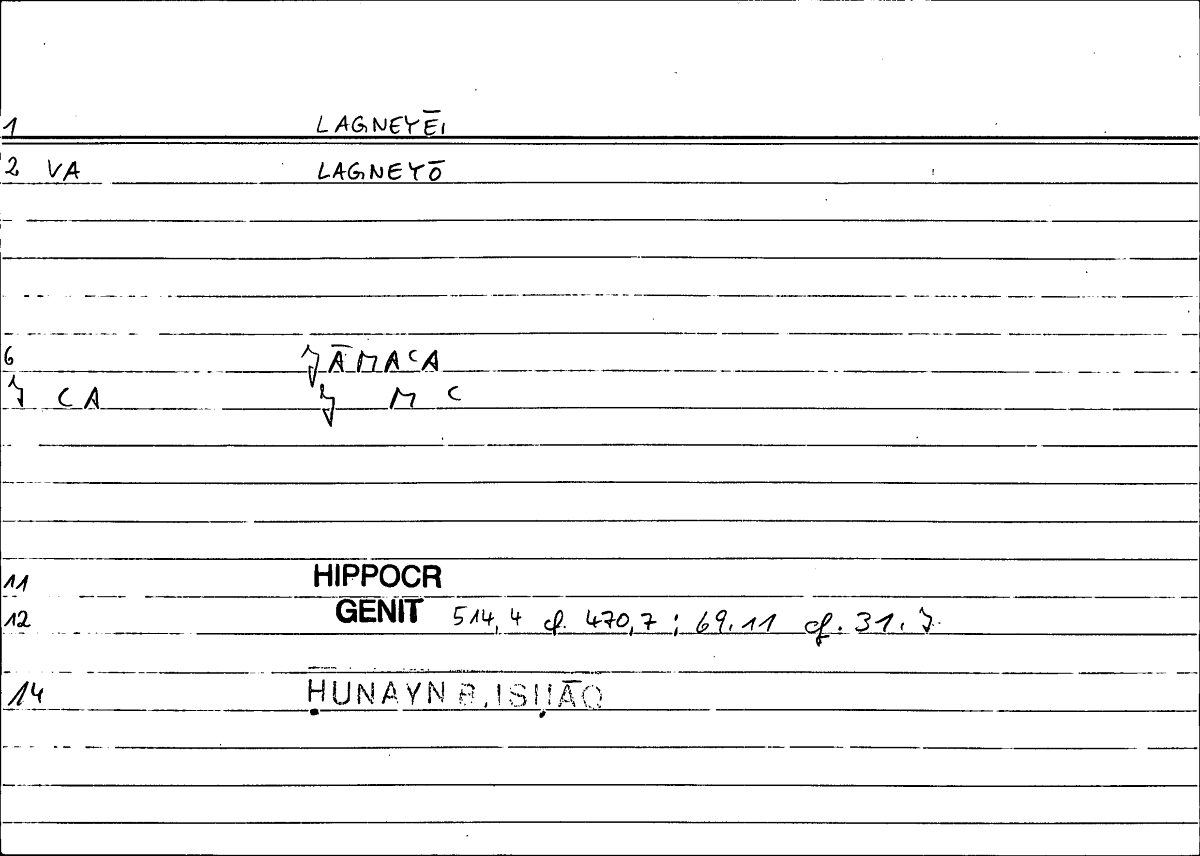 1 LAGNEYĒI
2 VA LAGNEYŌ
6 JĀMAᶜA
7 CA J M ᶜ
11 HIPPOCR
12 GENIT 514,4 cf. 470,7; 69.11 cf. 31.7
14 ḤUNAYN B. ISḤĀQ